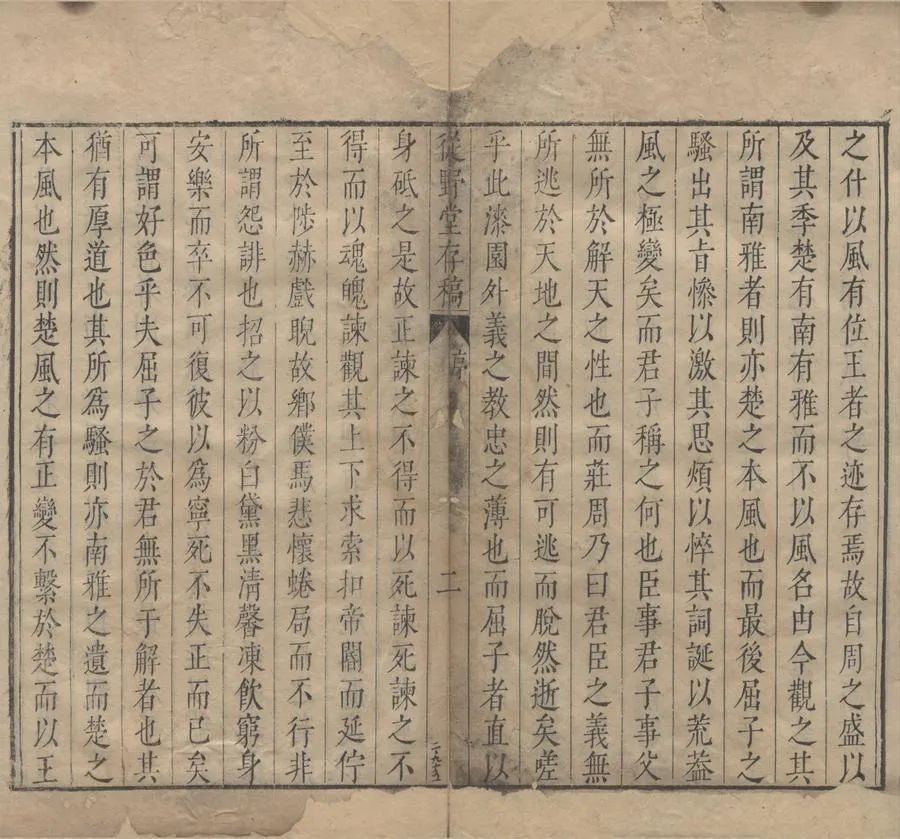 之什以風有位王者之迹存焉故自周之盛以
及其季楚有南有雅而不以風名由今觀之其
所謂南雅者則亦楚之本風也而最後屈子之
騷出其旨慘以激其思煩以悴其詞誕以荒葢
風之極變矣而君子稱之何也臣事君子事父
無所於解天之性也而莊周乃曰君臣之義無
所逃於天地之間然則有可逃而脫然逝矣嗟
乎此漆園外義之教忠之薄也而屈子者直以
從野堂存稿 序 二
身砥之是故正諫之不得而以死諫死諫之不
得而以魂魄諫觀其上下求索扣帝閽而延佇
至於陟赫戲睨故鄉僕馬悲懷蜷局而不行非
所謂怨誹也招之以粉白黛黑清馨凍飲窮身
安樂而卒不可復彼以為寧死不失正而已矣
可謂好色乎夫屈子之於君無所于解者也其
猶有厚道也其所為騷則亦南雅之遺而楚之
本風也然則楚風之有正變不繫於楚而以王